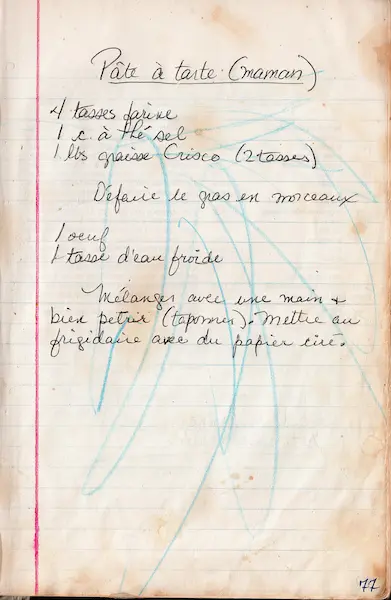 Pâte à tarte (maman)
4 tasses farine
1 c. à thé sel
1 lbs graisse Crisco (2 tasses)
Défaire le gras en morceaux
1 oeuf
1 tasse d'eau froide
Mélanger avec une main +
bien petrir (taponner). Mettre au
frigidaire avec du papier ciré.
77